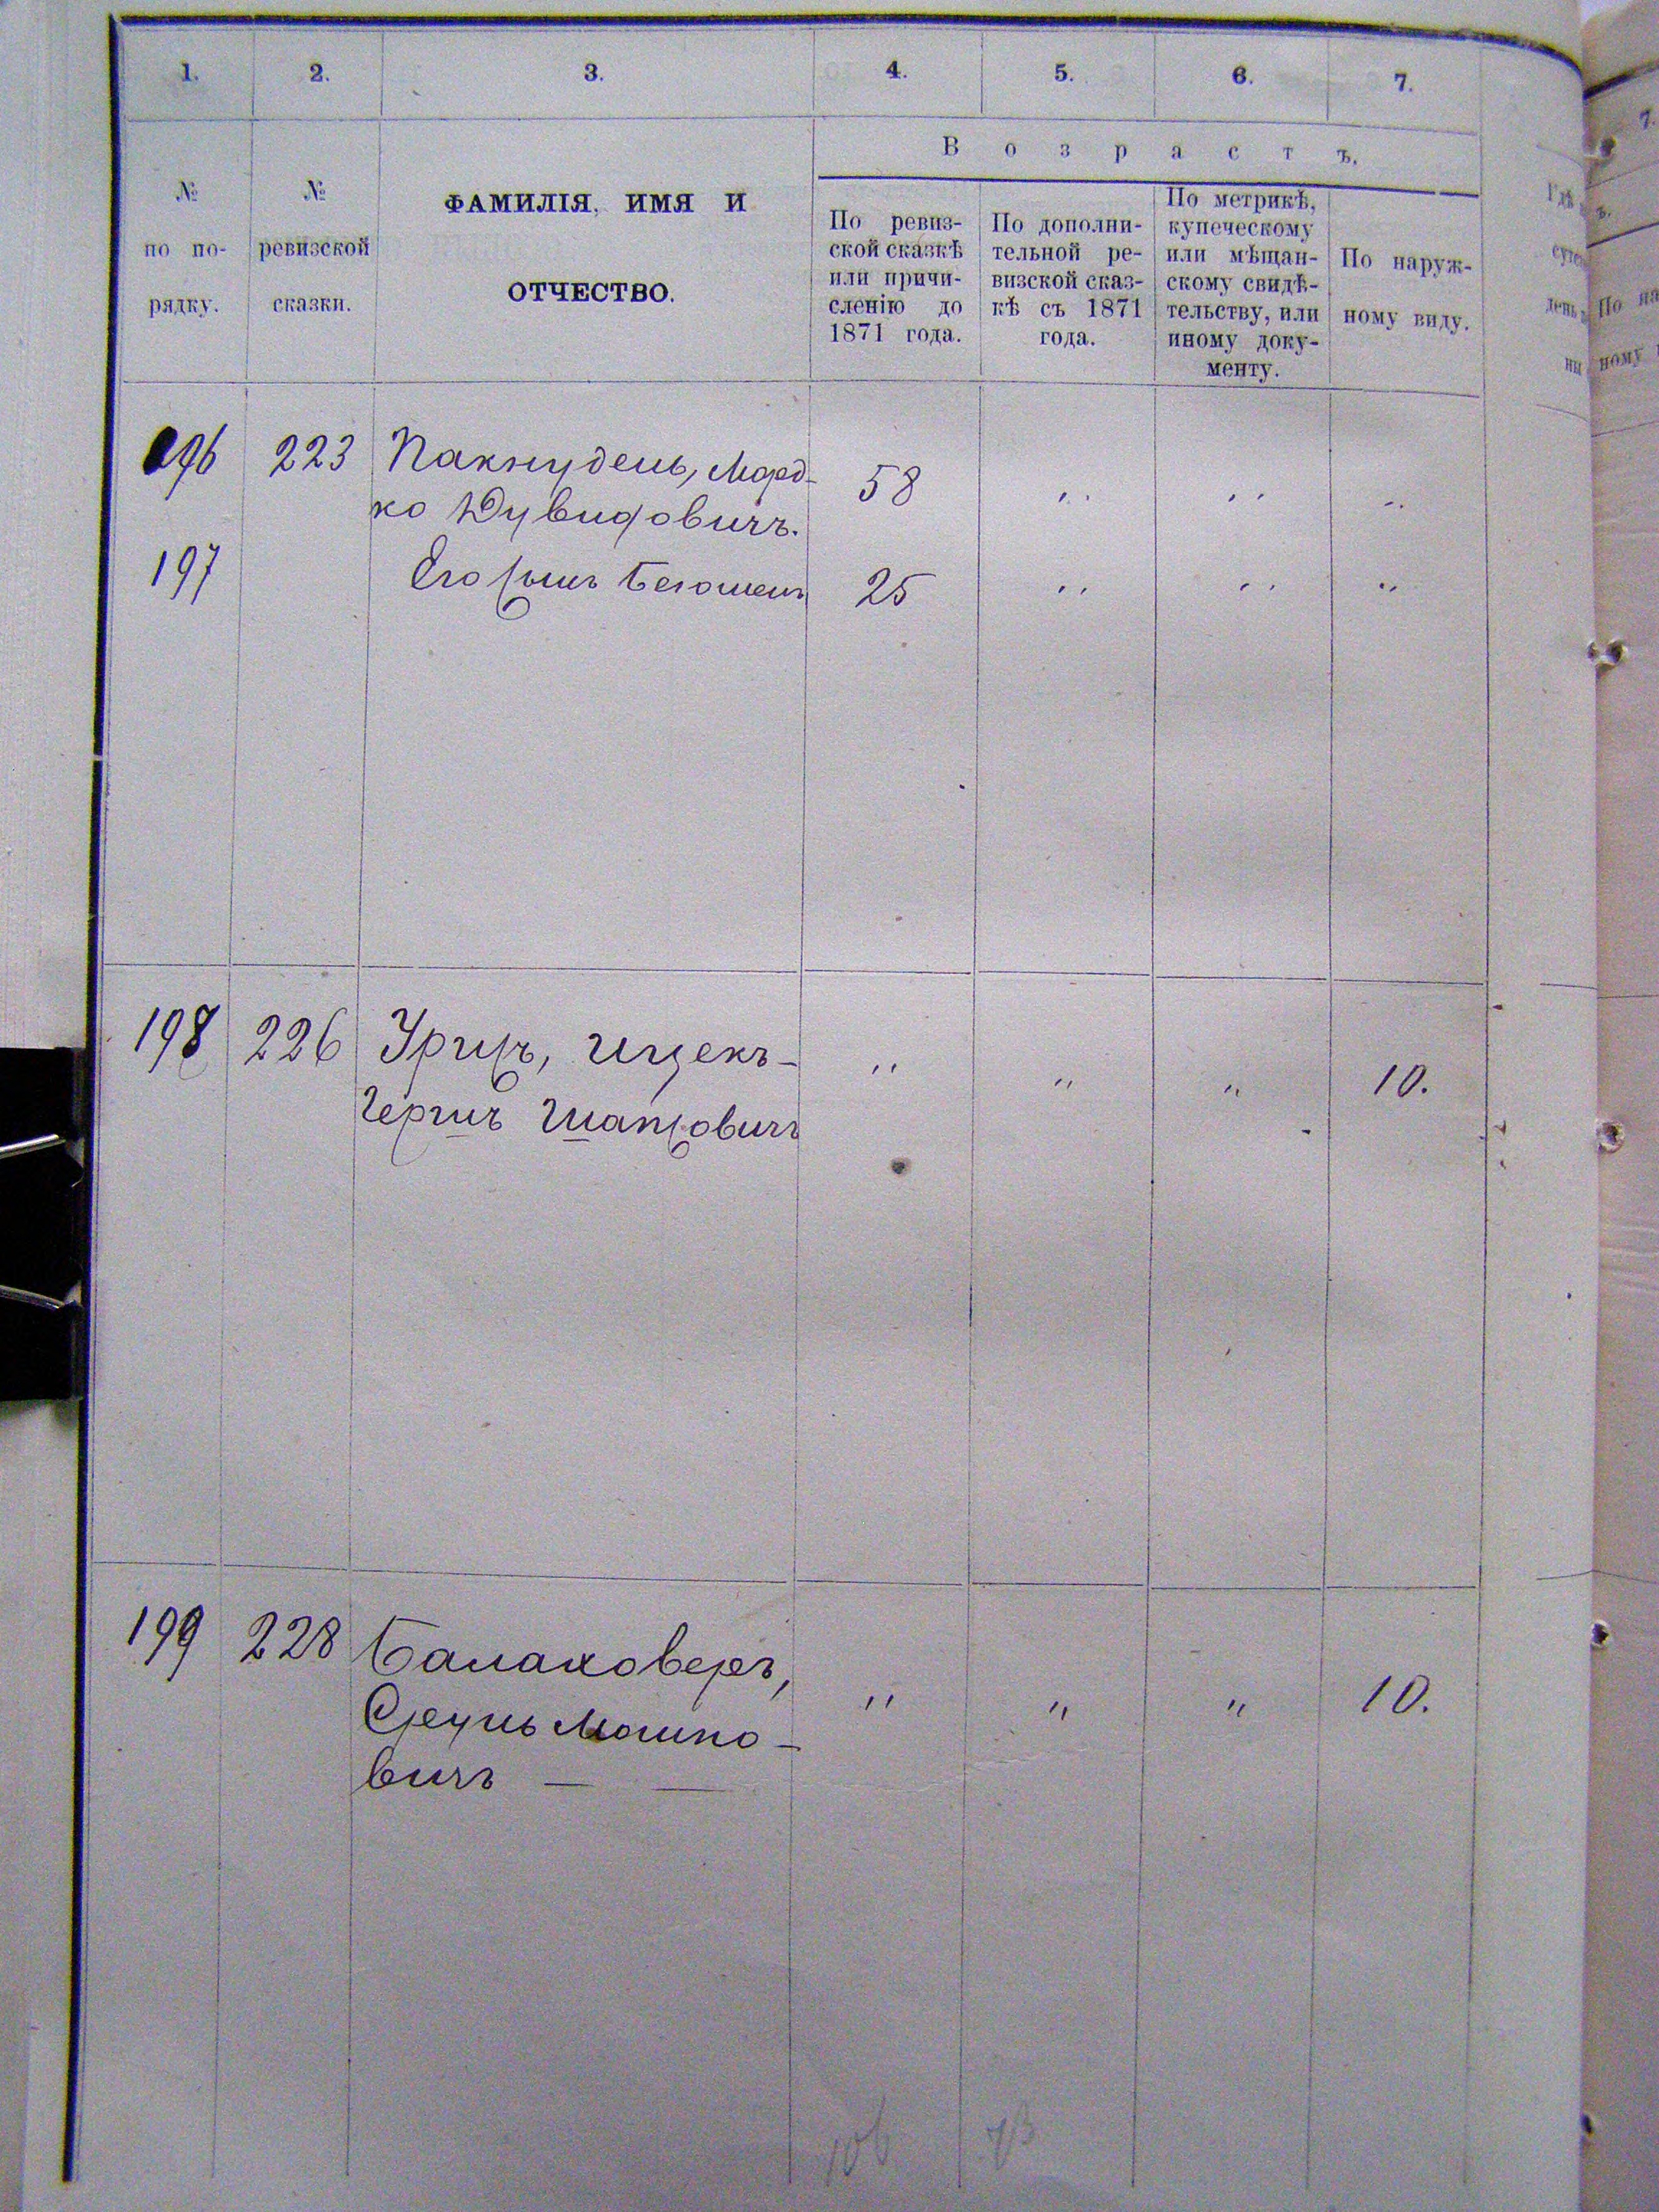 1. 2. 3. 4. 5. 6. 7.
Возрастъ.
№
по по-
рядку.
№
ревизской
сказки.
ФАМИЛІЯ, ИМЯ И
ОТЧЕСТВО.
По ревиз-
ской сказкѣ
или причи-
сленію до
1871 года.
По дополни-
тельной ре-
визской сказ-
кѣ съ 1871
года.
По метрикѣ,
купеческому
или мѣщан-
скому свидѣ-
тельству, или
иному доку-
менту.
По наруж-
ному виду.
196 223 Пакнудель, Морд- 58 " " "
ко Дувидовичъ.
197 Его сынъ 25 " " "
198 226 Урицъ, Ицекъ- " " " 10.
Гершъ Шапсовичъ
199 228 Балаховеръ, " " " 10.
Сруль Мошко-
вичъ — —